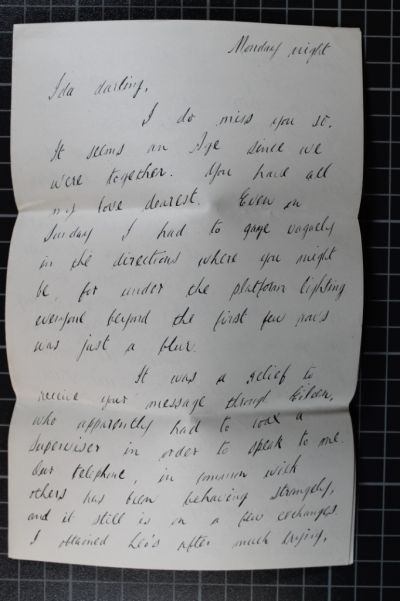 Monday night
Ida darling,
I do miss you so.
It seems an Age since we
were together. You have all
my love dearest. Even on
Sunday I had to gaze vaguely
in the directions where you might
be, for under the platform lighting
everyone beyond the first few rows
was just a blur.
It was a relief to
receive your message through Eileen,
who apparently had to coax a
Supervisor in order to speak to me.
Our telephone, in common with
others has been behaving strangely,
and it still is on a few exchanges.
I obtained Leo's after much trying,